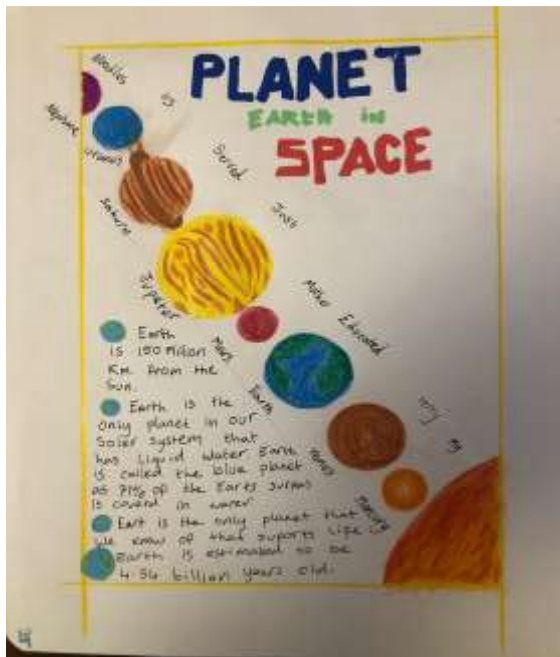 PLANET
EARTH in
SPACE
Noodles
us
Served
Just
Mother Educated
Very
My
Neptune
Uranus
Saturn
Jupater
Mars
Earth
Venus
Mercury
Earth
is 150 Million
Km from the
Sun.
Earth is the
only planet in our
Soler system that
has liquid water Earth
is called the blue planet
as 71% of the Earts surfas
is coverd in water
Eart is the only planet that
We know of that suports life
Earth is estimated to be
4.54 billion years old.